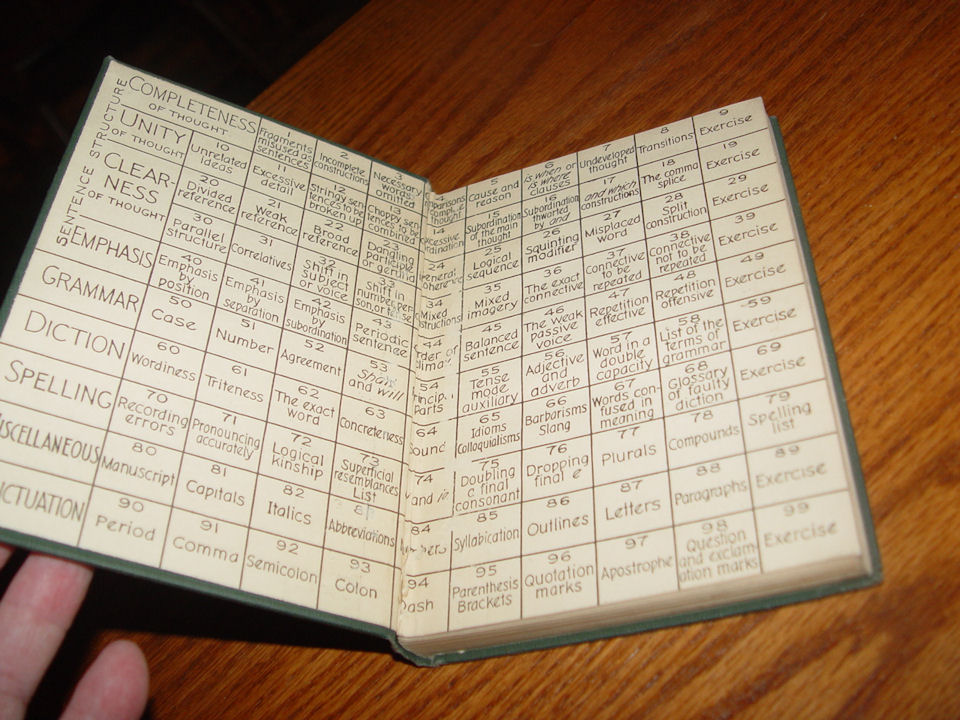 SENTENCE STRUCTURE
COMPLETENESS
OF THOUGHT
1
Fragments
misused as
sentences
2
Incomplete
constructions
3
Necessary
words
omitted
4
thought
5
Cause and
reason
6
is when or
is where
clauses
7
Undeveloped
thought
8
Transitions
9
Exercise
UNITY
OF THOUGHT
10
Unrelated
ideas
11
Excessive
detail
12
Stringy sen-
tences to be
broken up
13
Choppy sen-
tences to be
combined
14
15
Subordination
of the main
thought
16
Subordination
thwarted
by and
17
and which
constructions
18
The comma
splice
19
Exercise
CLEAR
NESS
OF THOUGHT
20
Divided
reference
21
Weak
reference
22
Broad
reference
23
Dangling
participle
or gerund
24
25
Logical
sequence
26
Squinting
modifier
27
Misplaced
word
28
Split
construction
29
Exercise
30
Parallel
structure
31
Correlatives
32
Shift in
subject
or voice
33
Shift in
number, per-
son or
34
Mixed
35
Mixed
imagery
36
The exact
connective
37
Connective
to be
repeated
38
Connective
not to be
repeated
39
Exercise
EMPHASIS
40
Emphasis
by
position
41
Emphasis
by
separation
42
Emphasis
by
subordination
43
Periodic
sentence
44
45
Balanced
sentence
46
The weak
passive
voice
47
Repetition
effective
48
Repetition
offensive
49
Exercise
GRAMMAR
50
Case
51
Number
52
Agreement
53
Shall
and will
54
parts
55
Tense
mode
auxiliary
56
Adjective
and
adverb
57
Word in a
double
capacity
58
List of the
terms of
grammar
59
Exercise
DICTION
60
Wordiness
61
Triteness
62
The exact
word
63
Concreteness
64
65
Idioms
Colloquialisms
66
Barbarisms
Slang
67
Words con-
fused in
meaning
68
Glossary
of faulty
diction
69
Exercise
SPELLING
70
Recording
errors
71
Pronouncing
accurately
72
Logical
kinship
73
Superficial
resemblances
List
74
75
Doubling
a final
consonant
76
Dropping
final e
77
Plurals
78
Compounds
79
Spelling
list
ISCELLANEOUS
80
Manuscript
81
Capitals
82
Italics
Abbreviations
84
85
Syllabication
86
Outlines
87
Letters
88
Paragraphs
89
Exercise
NCTUATION
90
Period
91
Comma
92
Semicolon
93
Colon
94
ash
95
Parenthesis
Brackets
96
Quotation
marks
97
Apostrophe
98
Question
and exclam-
ation marks
99
Exercise